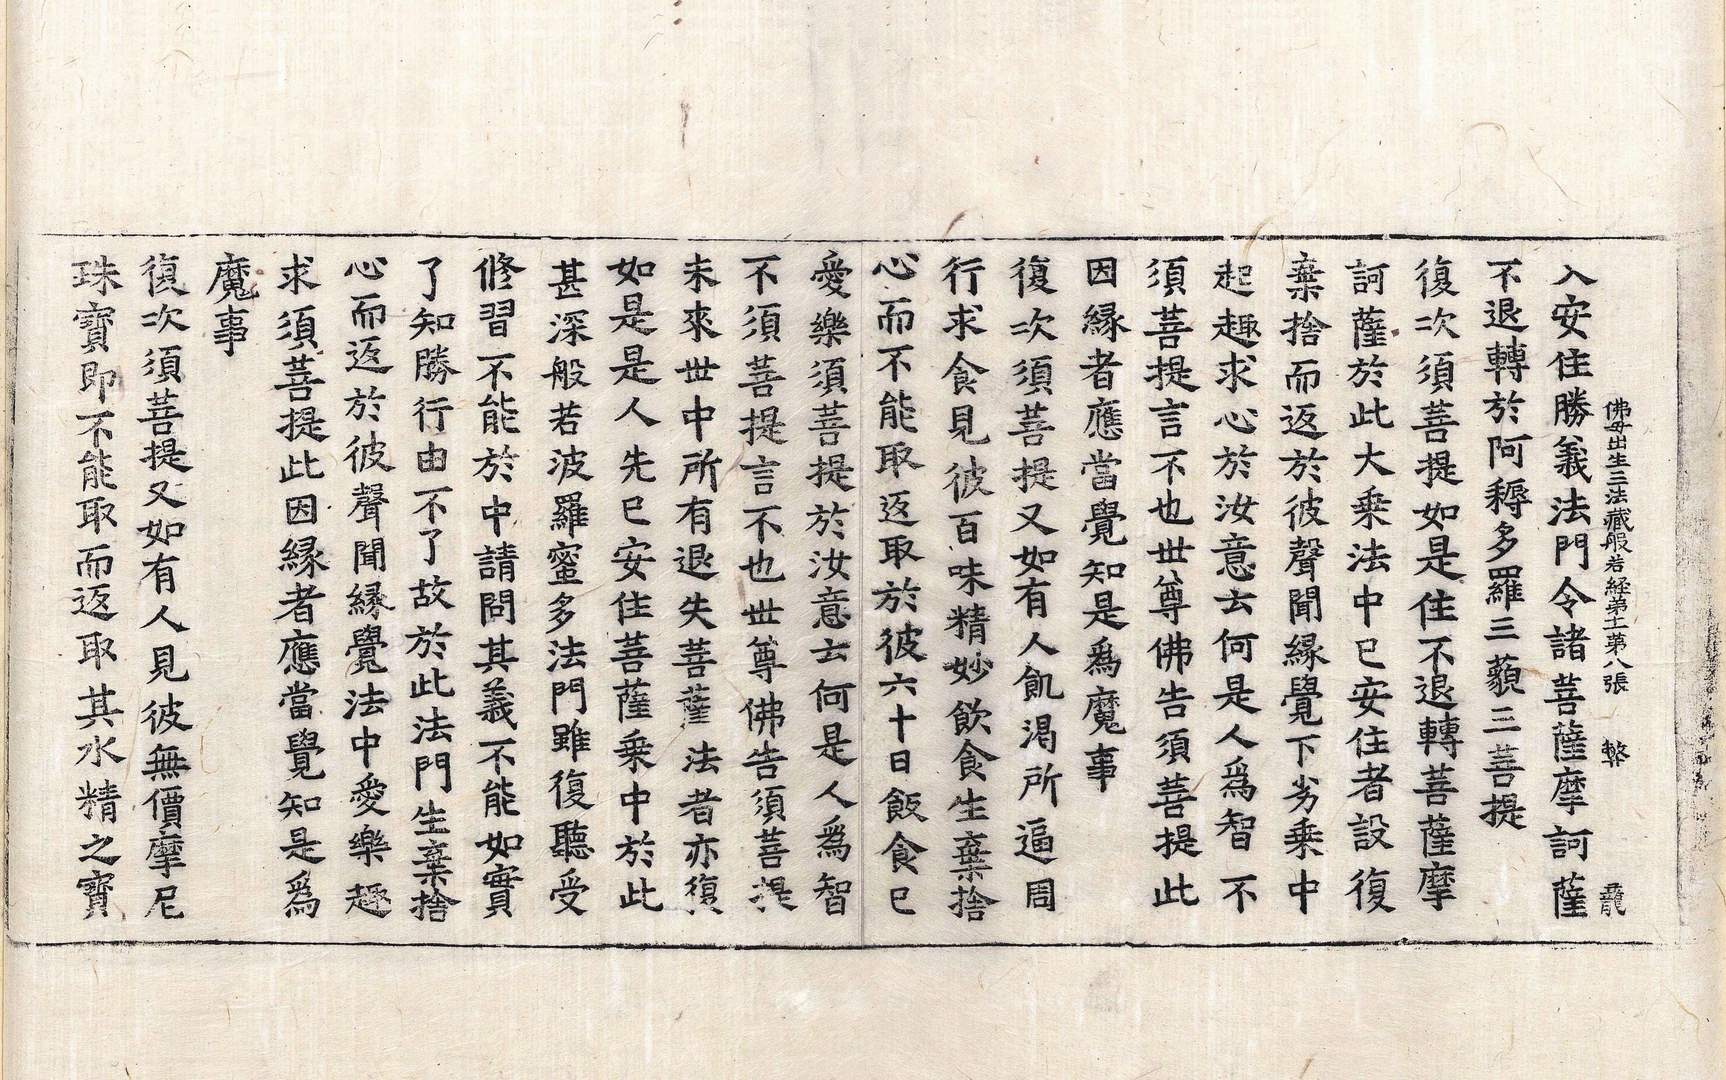 佛母出生三法藏般若経第十一第八張 䯧
入安住勝義法門令諸菩薩摩訶薩
不退轉於阿耨多羅三藐三菩提
復次須菩提如是住不退轉菩薩摩
訶薩於此大乗法中已安住者設復
棄捨而返於彼聲聞緣覺下劣乗中
起趣求心於汝意云何是人爲智不
須菩提言不也世尊佛告須菩提此
因緣者應當覺知是爲魔事
復次須菩提又如有人飢渴所逼周
行求食見彼百味精妙飲食生棄捨
心而不能取返取於彼六十日飯食已
愛樂須菩提於汝意云何是人爲智
不須菩提言不也世尊佛告須菩提
未來世中所有退失菩薩法者亦復
如是是人先已安住菩薩乗中於此
甚深般若波羅蜜多法門雖復聽受
修習不能於中請問其義不能如實
了知勝行由不了故於此法門生棄捨
心而返於彼聲聞緣覺法中愛樂趣
求須菩提此因緣者應當覺知是爲
魔事
復次須菩提又如有人見彼無價摩尼
珠寶即不能取而返取其水精之寶